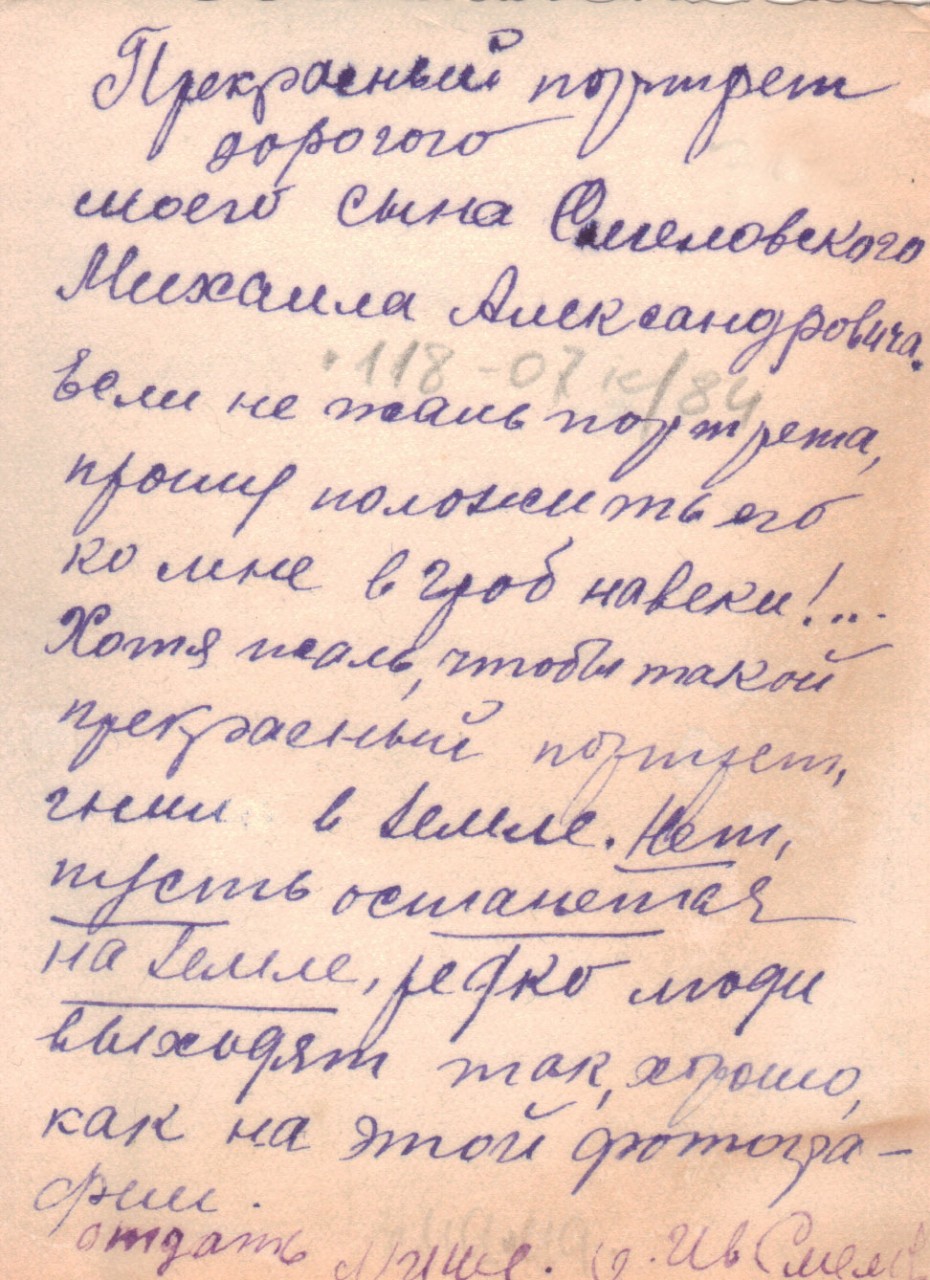 Прекрасный портрет
дорогого
моего сына Смеловского
Михаила Александровича.
118-07 к/84
Если не жаль портрета,
прошу положить его
ко мне в гроб навеки!...
Хотя жаль, чтобы такой
прекрасный портрет,
гнил в земле. Нет,
пусть останется
на земле, редко люди
выходят так, хорошо,
как на этой фотогра-
фии.
отдать Мише.